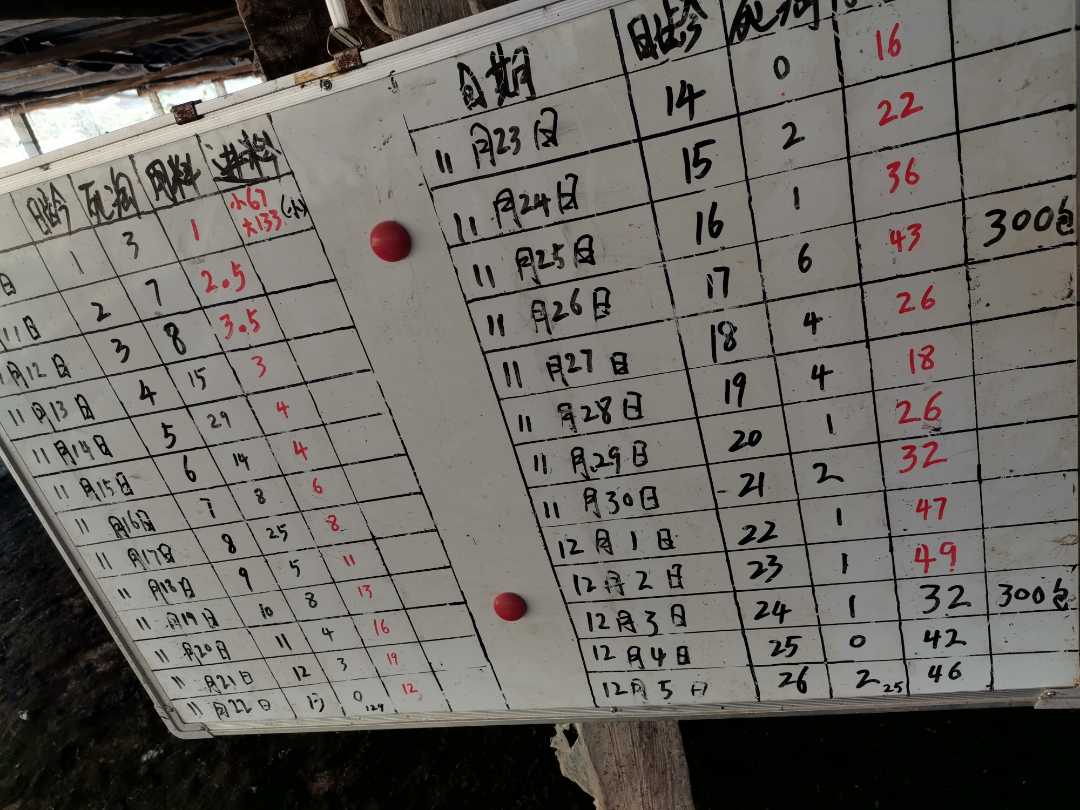 日龄 死淘 用料 进料
日 1 3 1 小67 大133 (小)
11日 2 7 2.5
月12日 3 8 3.5
11月13日 4 15 3
11月14日 5 29 4
11月15日 6 14 4
11月16日 7 8 6
11月17日 8 25 8
11月18日 9 5 11
11月19日 10 8 13
11月20日 11 4 16
11月21日 12 3 19
11月22日 13 0 129 12
日期 日龄 死淘
11月23日 14 0 16
11月24日 15 2 22
11月25日 16 1 36
11月26日 17 6 43 300包
11月27日 18 4 26
11月28日 19 4 18
11月29日 20 1 26
11月30日 21 2 32
12月1日 22 1 47
12月2日 23 1 49
12月3日 24 1 32 300包
12月4日 25 0 42
12月5日 26 2 25 46